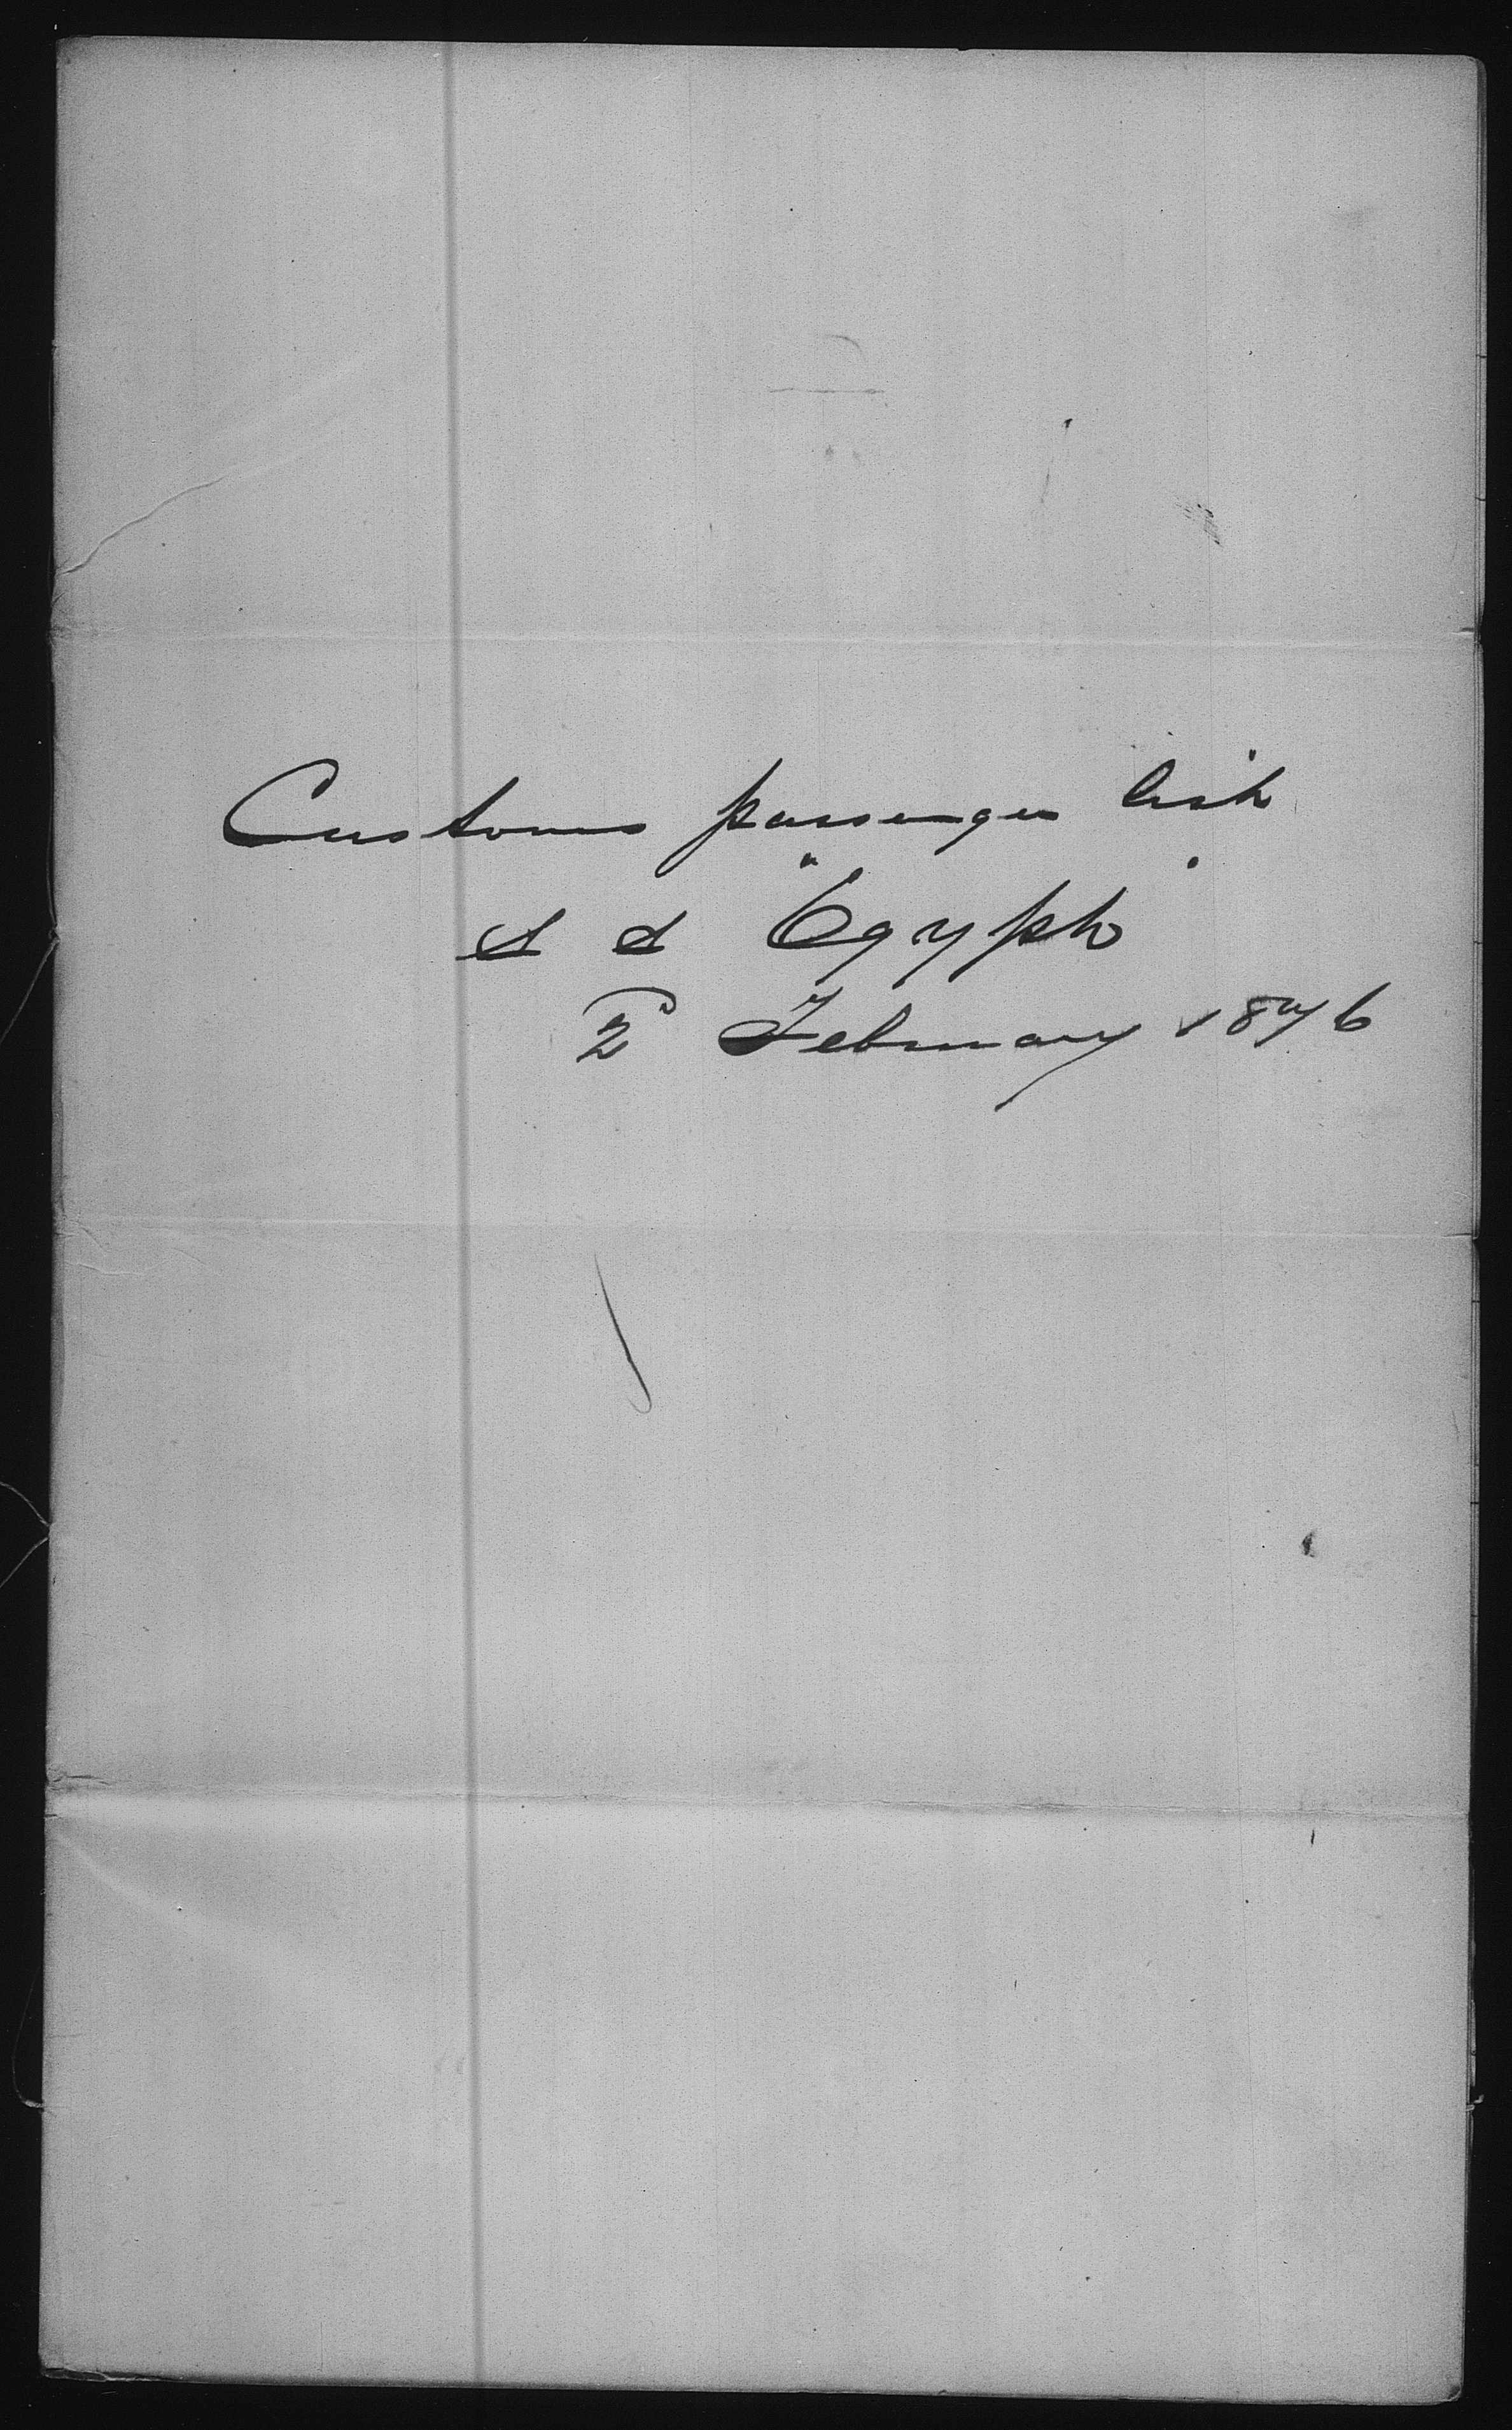 Customs passenger list
S S "Egypt"
2d February 1876